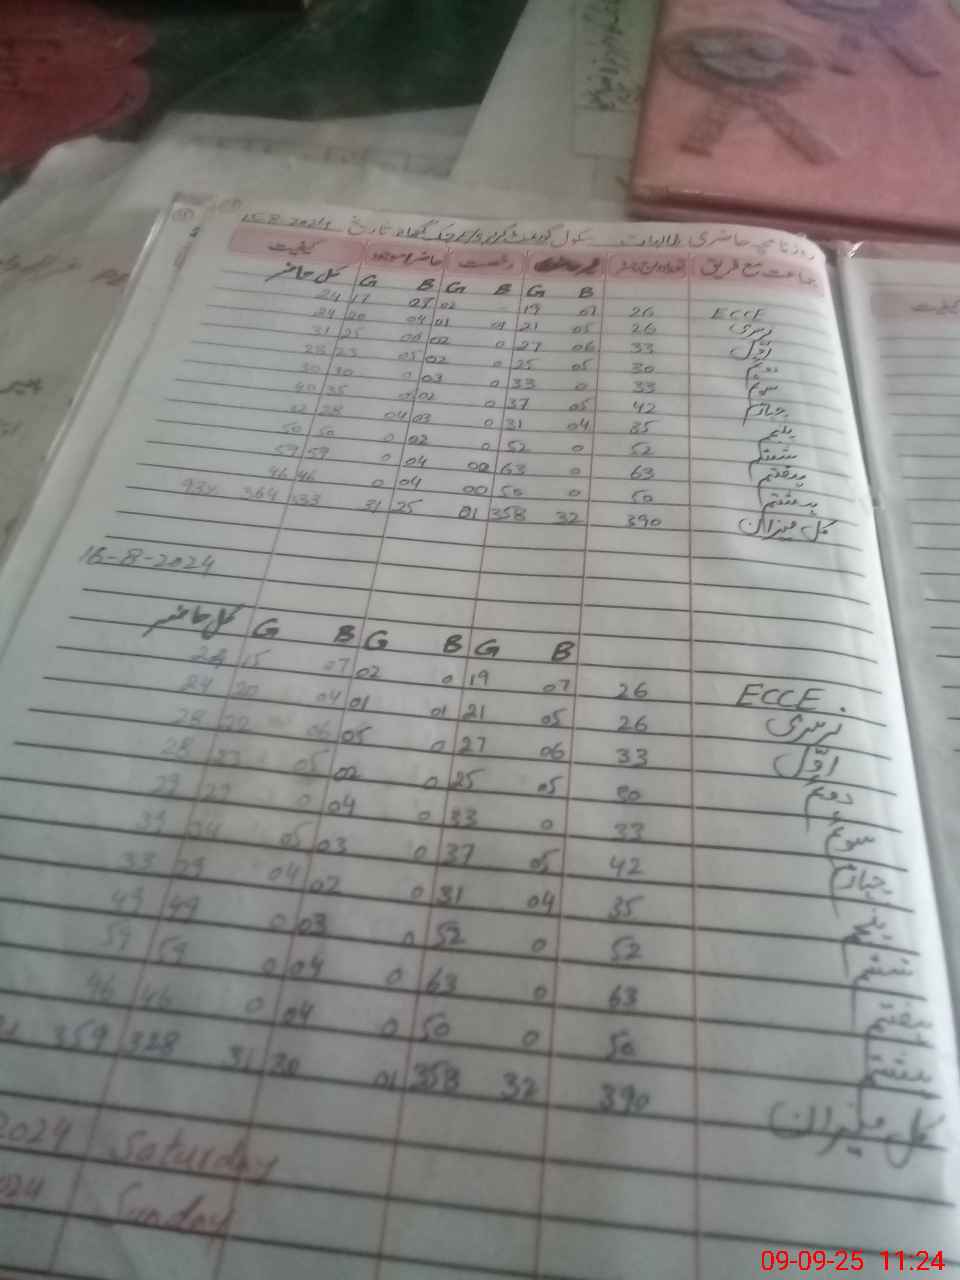 روزنامچہ حاضری طالبات سکول گورنمنٹ گرلز تاریخ 15-8-2024
جماعت مع فریق رخصت کیفیت
B G B G B G کل حاضر
ECCE 26 07 19 02 07 17 24
نرسری 26 05 21 01 01 04 20 24
اوّل 33 06 27 0 02 25 31
دوئم 30 05 25 0 02 05 23 28
سوئم 33 0 33 0 03 0 30 30
چہارم 42 05 37 0 02 35 40
پنجم 35 04 31 0 03 04 28 32
ششم 52 0 52 0 02 0 50 50
ہفتم 63 0 63 00 04 0 59 59
ہشتم 50 0 50 00 04 0 46 46
کل میزان 390 32 358 01 25 31 333 364 93%
16-8-2024
B G B G B G کل حاضر
ECCE. 26 07 19 0 02 07 15
نرسری 26 05 21 01 01 04 20 24
اوّل 33 06 27 0 05 06 22 28
دوئم 30 05 25 0 02 05 23 28
سوئم 33 0 33 0 04 0 29 29
چہارم 42 05 37 0 03 05 34 39
پنجم 35 04 31 0 02 04 29 33
ششم 52 0 52 0 03 0 49 49
ہفتم 63 0 63 0 04 0 59 59
ہشتم 50 0 50 0 04 0 46 46
کل میزان 390 32 358 01 30 31 328 359
2024 Saturday
024 Sunday
09-09-25 11:24